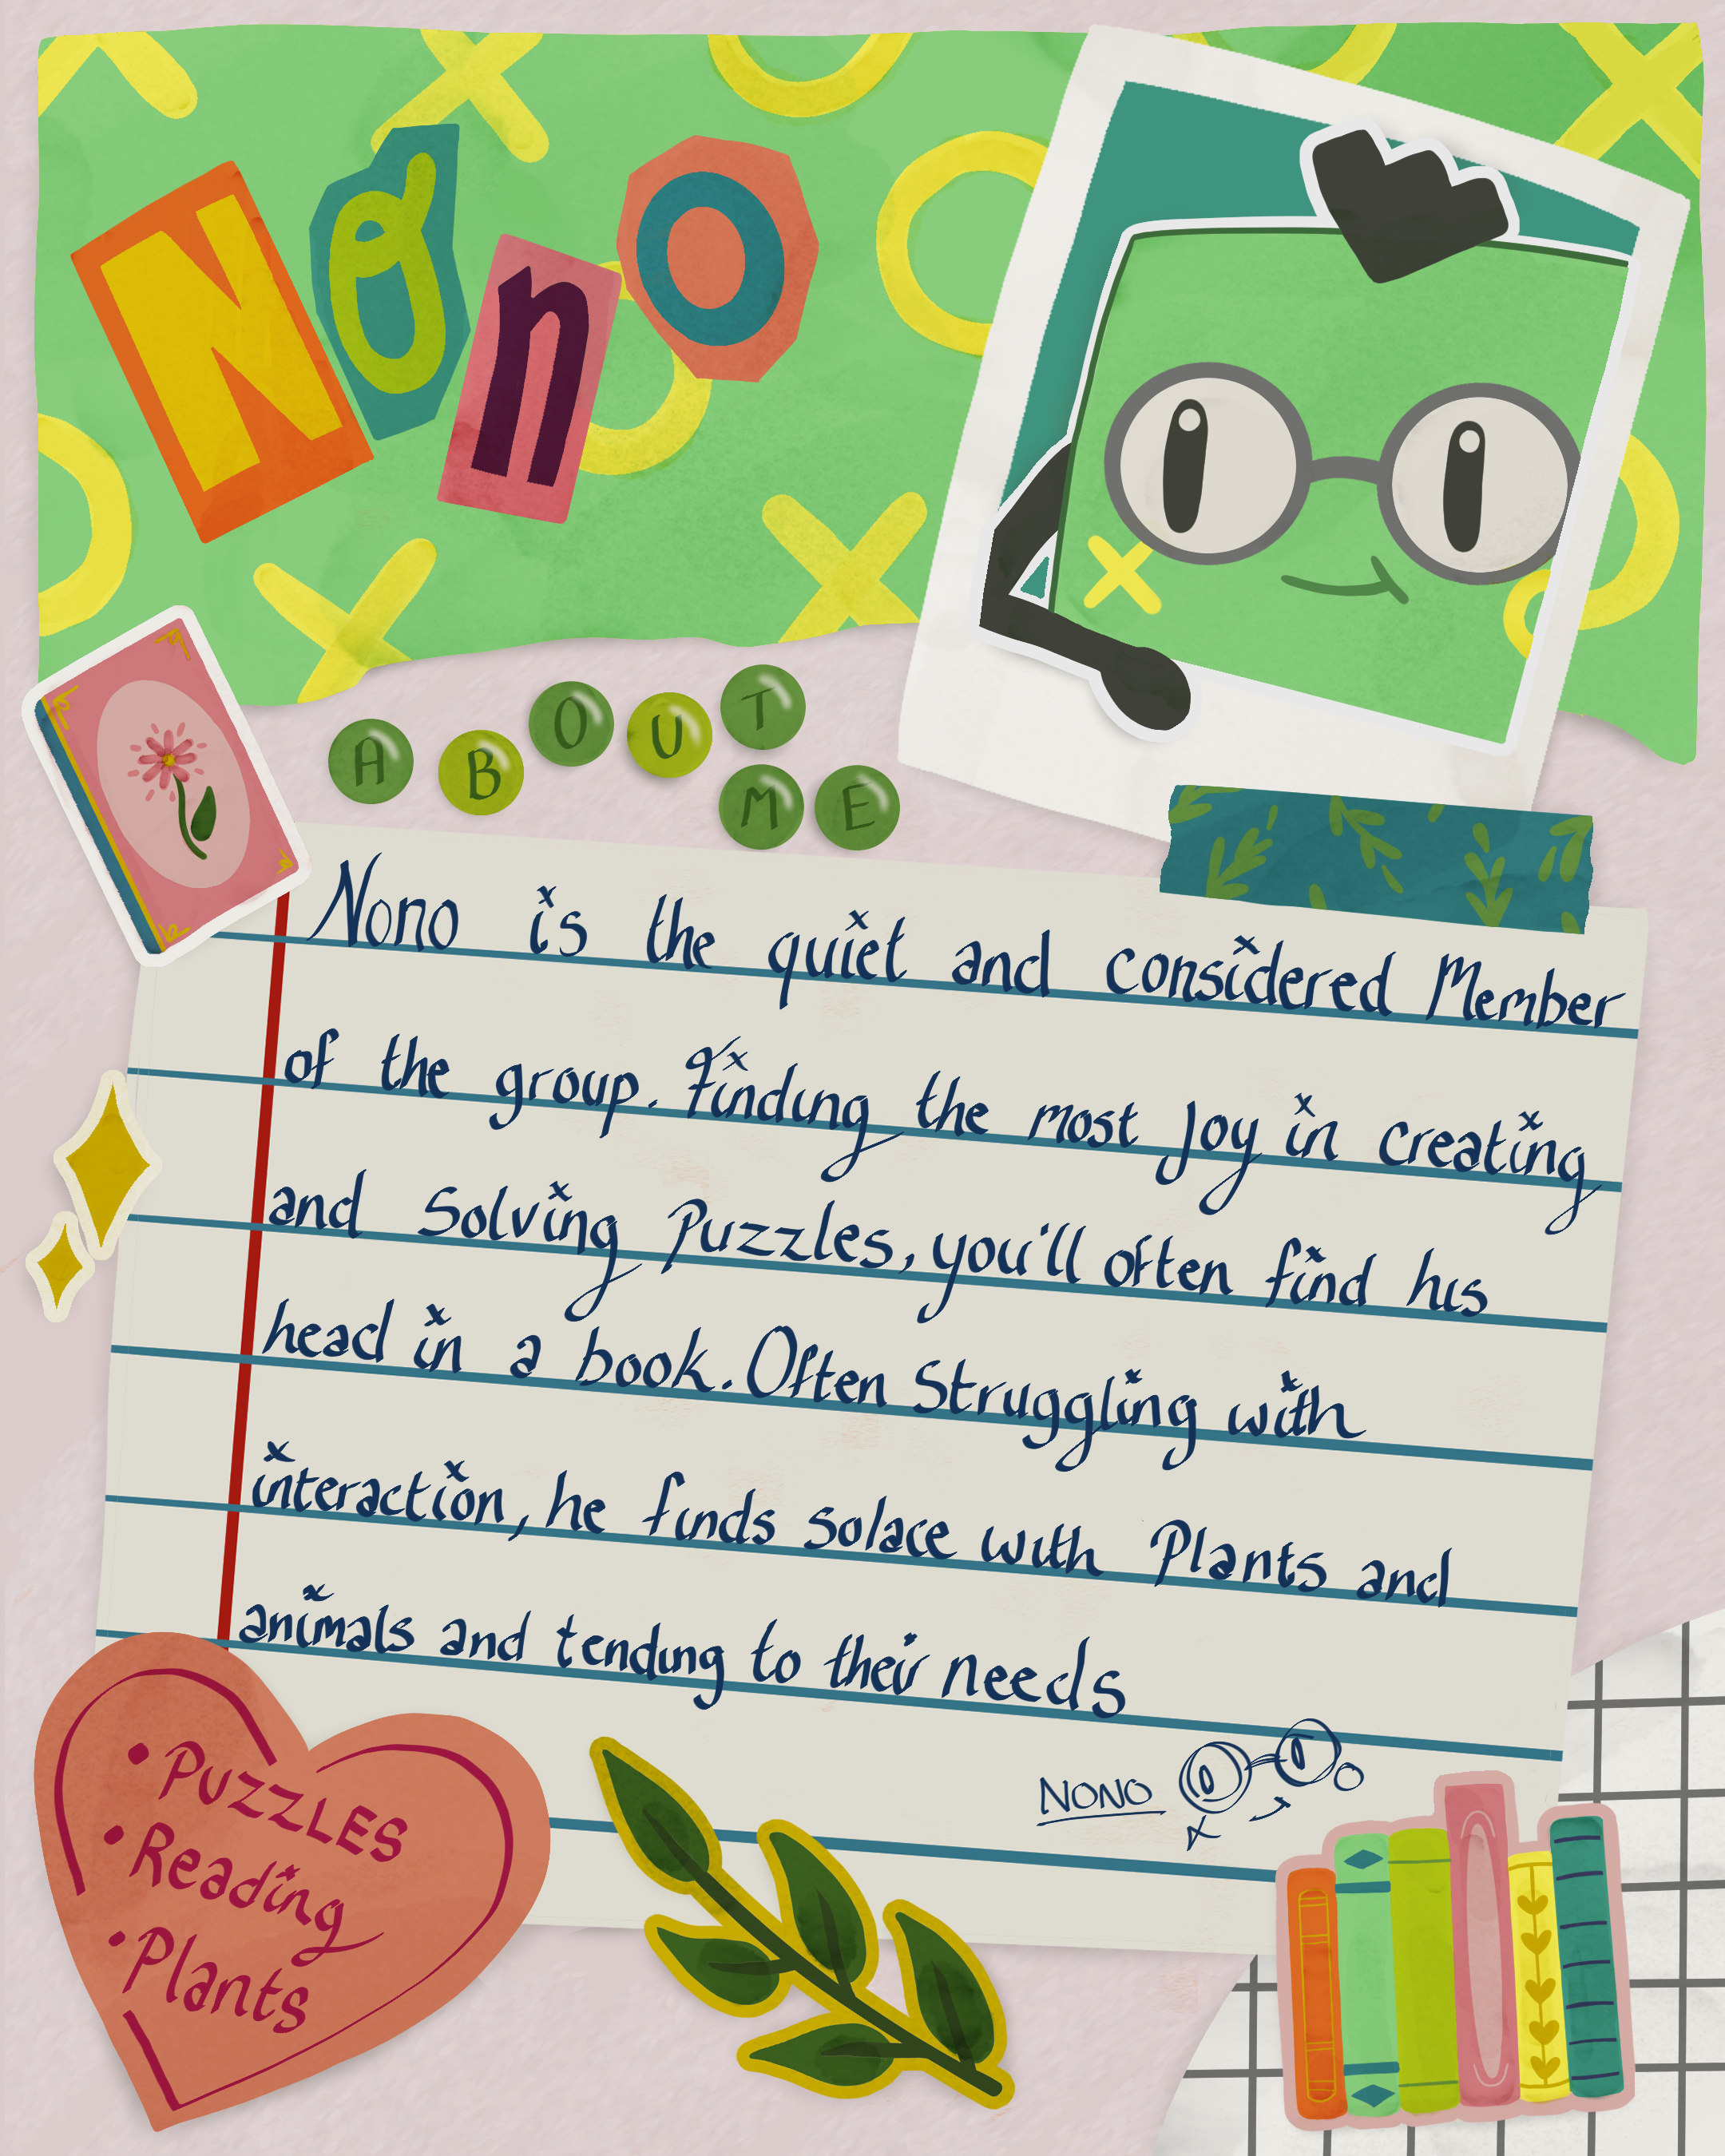 Nono
ABOUT
ME
Nono is the quiet and considered Member
of the group. Finding the most Joy in creating
and Solving Puzzles, you'll often find his
head in a book. Often Struggling with
interaction, he finds solace with Plants and
animals and tending to their needs
NONO
• PUZZLES
• Reading
• Plants